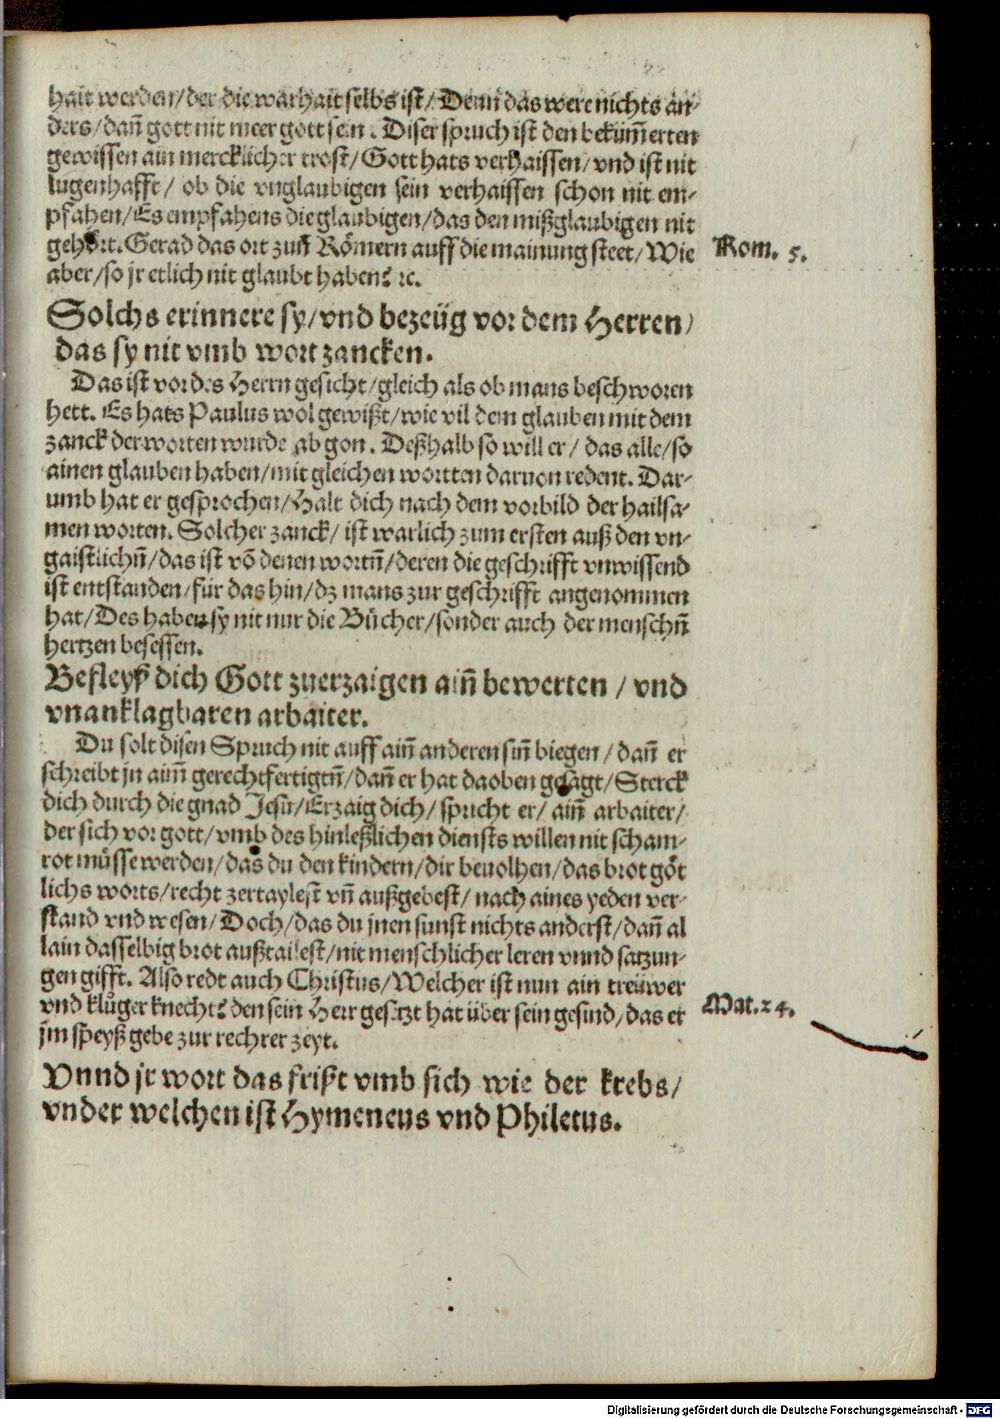 hait werden/der die warhait selbs ist/ Denn das were nichts an-
ders/dañ gott nit meer gott sein. Diser spruch ist den bekũm̃erten
gewissen ain mercklicher trost/Gott hats verhaissen/vnd ist nit
lugenhafft/ ob die vnglaubigen sein verhaissen schon nit em-
pfahen/Es empfahens die glaubigen/das den mißglaubigen nit
gehört. Gerad das ort zun Römern auff die mainung steet/Wie
aber/so jr etlich nit glaubt haben? ꝛc.
Rom. 5.
Solchs erinnere sy/vnd bezeüg vor dem Herren/
das sy nit vmb wort zancken.
Das ist vor des Herrn gesicht/gleich als ob mans beschworen
hett. Es hats Paulus wol gewißt/wie vil dem glauben mit dem
zanck der worten wurde ab gon. Deßhalb so will er/ das alle/so
ainen glauben haben/mit gleichen wortten daruon redent. Dar-
umb hat er gesprochen/Halt dich nach dem vorbild der hailsa-
men worten. Solcher zanck/ ist warlich zum ersten auß den vn-
gaistlichñ/das ist võ denen wortñ/deren die geschrifft vnwissend
ist entstanden/für das hin/dz mans zur geschrifft angenommen
hat/Des haben sy nit nur die Bücher/sonder auch der menschñ
hertzen besessen.
Befleyß dich Gott zuerzaigen aiñ bewerten / vnd
vnanklagbaren arbaiter.
Du solt disen Spruch nit auff aiñ anderen siñ biegen/ dañ er
schreibt jn aim̃ gerechtfertigtñ/dañ er hat daoben gesagt/Sterck
dich durch die gnad Jesu/Erzaig dich/ spricht er/ aiñ arbaiter/
der sich vor gott/vmb des hinleßlichen diensts willen nit scham-
rot müsse werden/das du den kindern/dir beuolhen/das brot göt
lichs worts/recht zertaylest vñ außgebest/ nach aines yeden ver-
stand vnd wesen/Doch/das du jnen sunst nichts anderst/dañ al
lain dasselbig brot außtailest/nit menschlicher leren vnnd satzun-
gen gifft. Also redt auch Christus/Welcher ist nun ain treüwer
vnd klůger knecht? den sein Herr gesetzt hat über sein gesind/das er
jm speyß gebe zur rechter zeyt.
Mat. 24.
Vnnd jr wort das frißt vmb sich wie der krebs/
vnder welchen ist Hymeneus vnd Philetus.
Digitalisierung gefördert durch die Deutsche Forschungsgemeinschaft - DFG